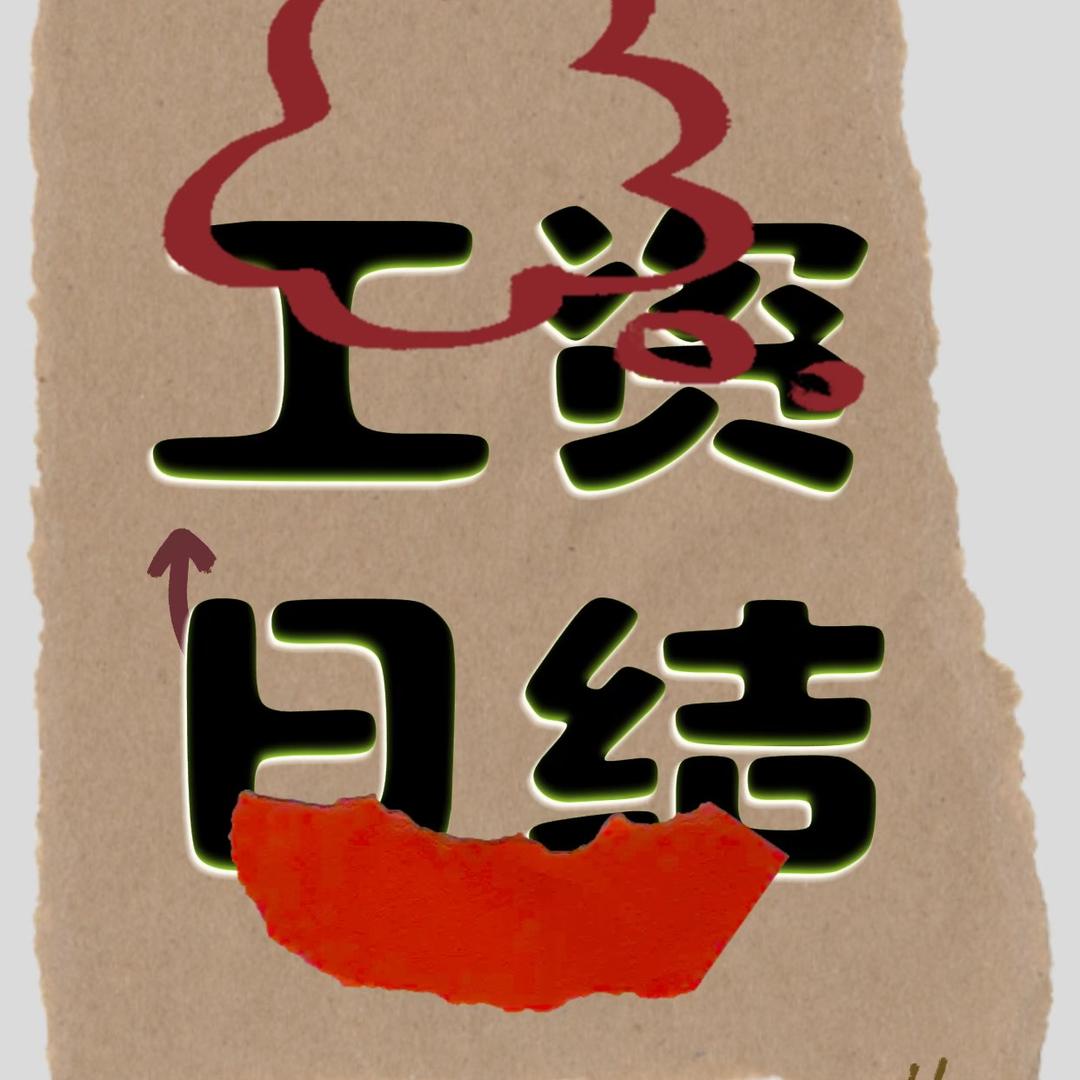 工资
日结